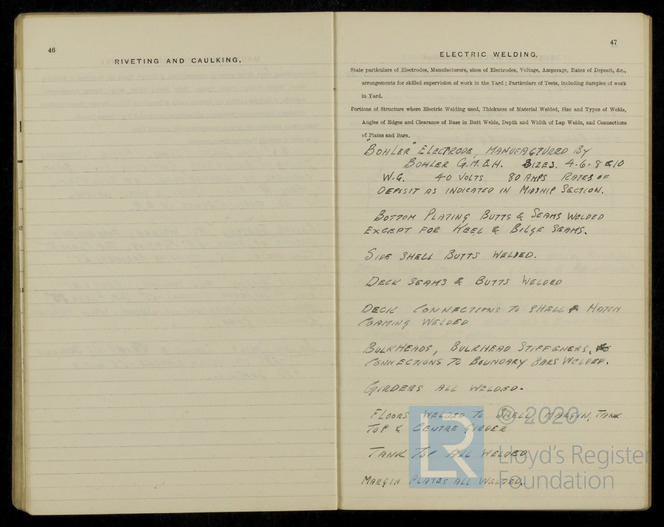 46
RIVETING AND CAULKING.
47
ELECTRIC WELDING.
State particulars of Electrodes, Manufacturers, sizes of Electrodes, Voltage, Amperage, Rates of Deposit, &c.,
arrangements for skilled supervision of work in the Yard; Particulars of Tests, including Samples of work
in Yard.
Portions of Structure where Electric Welding used, Thickness of Material Welded, Size and Types of Welds,
Angles of Edges and Clearance of Base in Butt Welds, Depth and Width of Lap Welds, and Connections
of Plates and Bars.
"BOHLER" ELECTRODE, MANUFACTURED BY
BOHLER G.M.B.H. SIZES. 4-6-8 & 10
W.G. 40 VOLTS. 80 AMPS RATES OF
DEPOSIT AS INDICATED IN MIDSHIP SECTION.
BOTTOM PLATING BUTTS & SEAMS WELDED
EXCEPT FOR KEEL & BILGE SEAMS.
SIDE SHELL BUTTS WELDED.
DECK SEAMS & BUTTS WELDED
DECK CONNECTIONS TO SHELL & HATCH
COAMING WELDED
BULKHEADS, BULKHEAD STIFFENERS, &
CONNECTIONS TO BOUNDARY BARS WELDED.
GIRDERS ALL WELDED.
FLOORS WELDED TO SHELL, MARGIN, TANK
TOP & CENTRE GIRDER
TANK TOP ALL WELDED
MARGIN PLATES ALL WELDED.
LR
© 2020
Lloyd's Register
Foundation